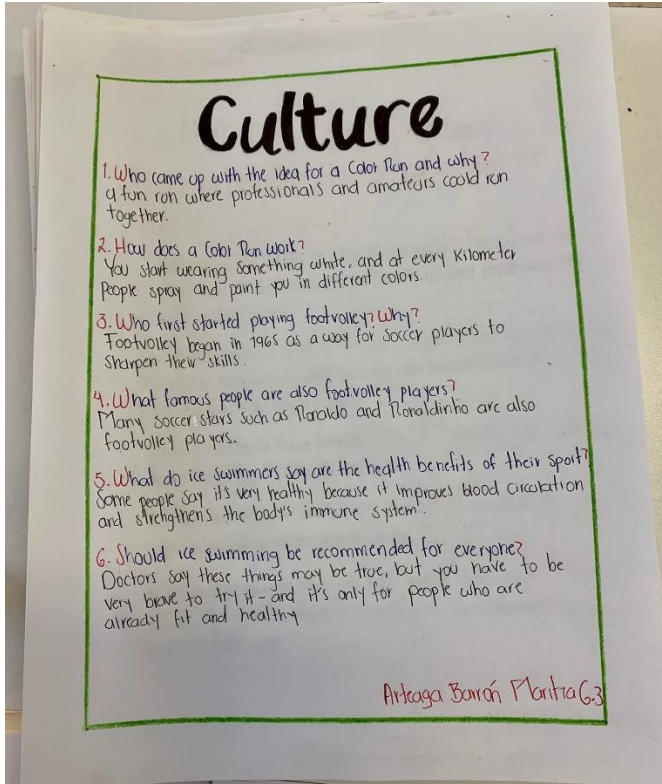 Culture
1. Who came up with the idea for a Color Run and why?
a fun run where professionals and amateurs could run
together.
2. How does a Color Run work?
You start wearing something white, and at every Kilometer
people spray and paint you in different colors.
3. Who first started playing footvolley? Why?
Footvolley began in 1965 as a way for soccer players to
sharpen their skills.
4. What famous people are also footvolley players?
Many soccer stars such as Ronaldo and Ronaldinho are also
footvolley players.
5. What do ice swimmers say are the health benefits of their sport?
Some people say it's very healthy because it improves blood circulation
and strengthens the body's immune system.
6. Should ice swimming be recommended for everyone?
Doctors say these things may be true, but you have to be
very brave to try it - and it's only for people who are
already fit and healthy
Arteaga Barrón 6.3